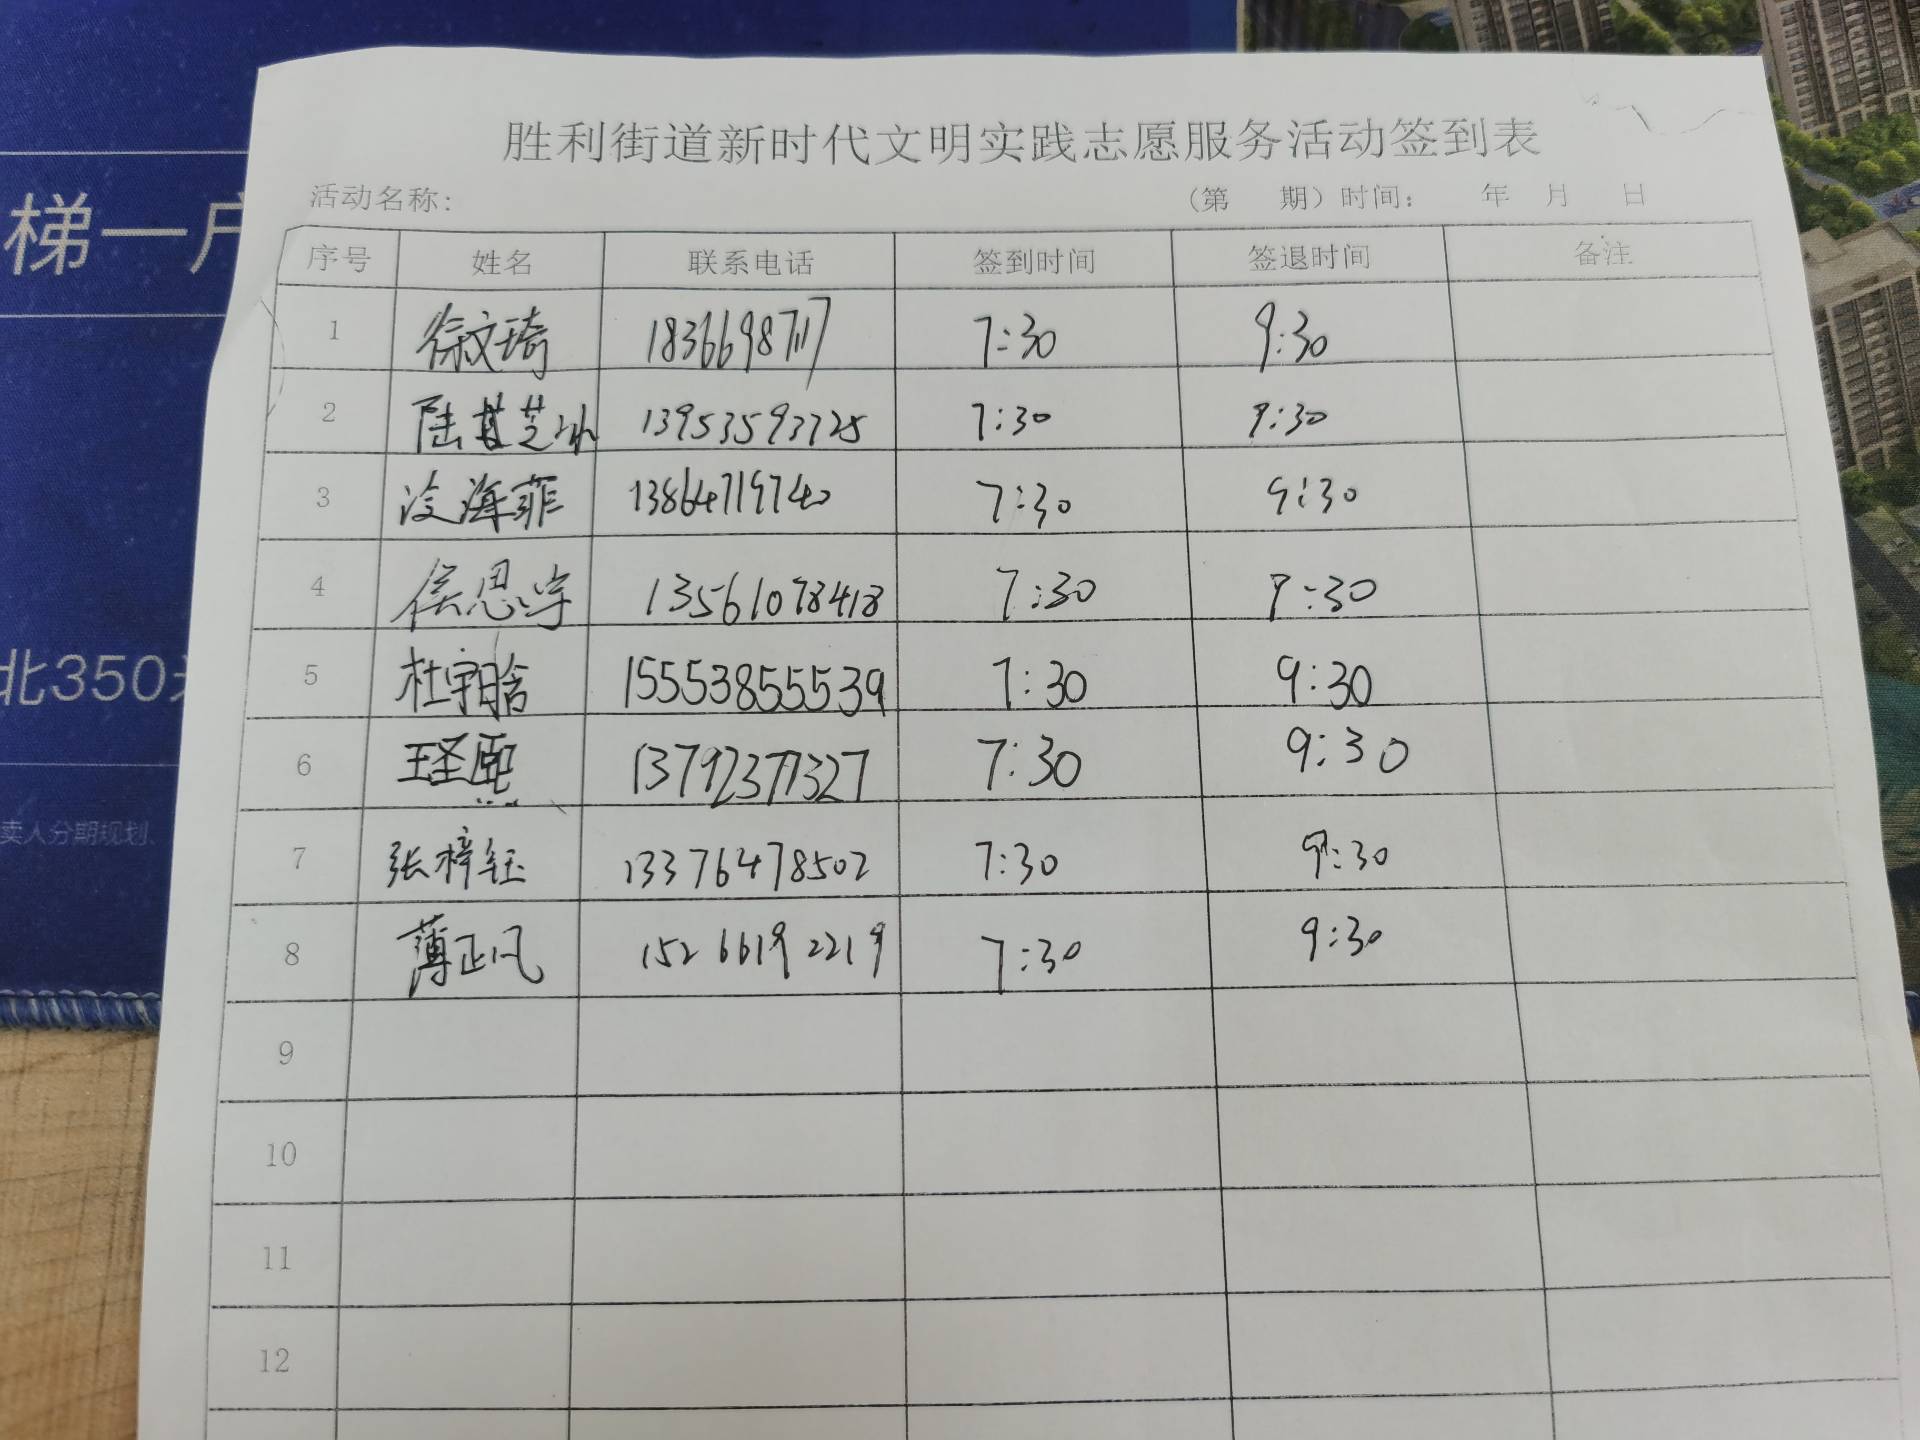 胜利街道新时代文明实践志愿服务活动签到表
活动名称: (第 期) 时间: 年 月 日
序号 姓名 联系电话 签到时间 签退时间 备注
1 徐文琦 7:30 9:30
2 13953593725 7:30 9:30
3 海菲 13864719740 7:30 9:30
4 侯思宇 13561078418 7:30 9:30
5 杜宇晗 15553855539 7:30 9:30
6 王圣熙 13792377327 7:30 9:30
7 张梓钰 13376478502 7:30 9:30
8 薄正凡 15266192219 7:30 9:30
9
10
11
12
梯一户
北350
卖人分期规划、